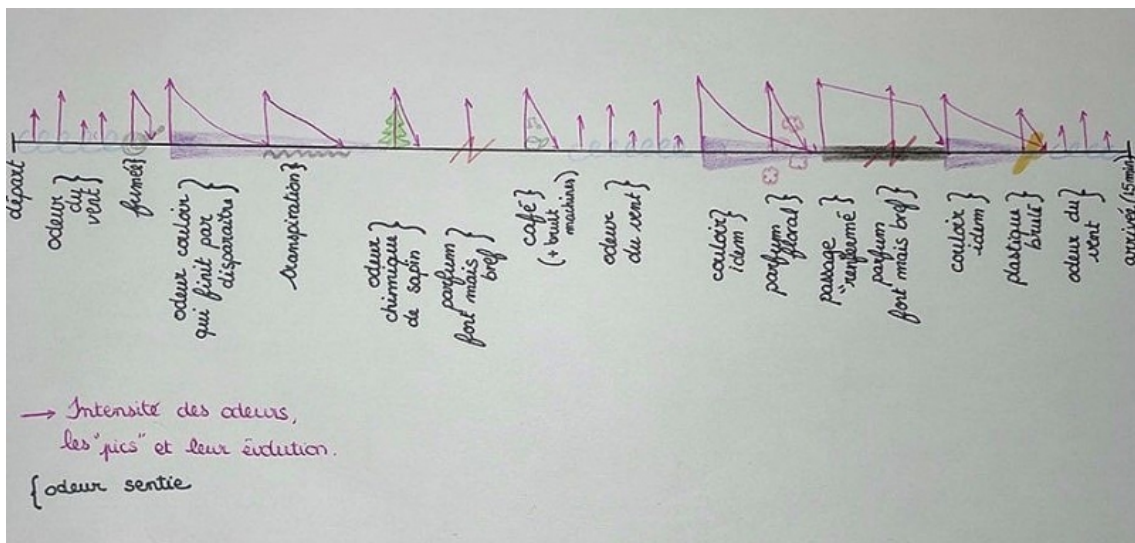 départ
odeur
du
vent
fumée
odeur couloir
qui finit par
disparaître
transpiration
odeur
chimique
de sapin
parfum
fort mais
bref
café
(+ bruit
machines)
odeur
du vent
couloir
idem
parfum
floral
passage
"renfermé"
parfum
fort mais bref
couloir
idem
plastique
brulé
odeur du
vent
arrivée (15min)
→ Intensité des odeurs,
les "pics" et leur évolution.
{odeur sentie